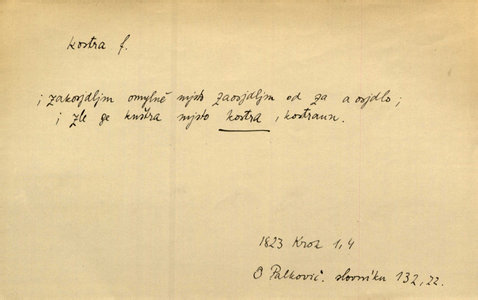 kostra f.
; zakosjdljm omylně mjsto zaosjdljm od za a osjdlo;
; zle ge kustra mjsto kostra, kostraun.
1823 Krok 1,4
O Palkovič. slovníku 132, 22.